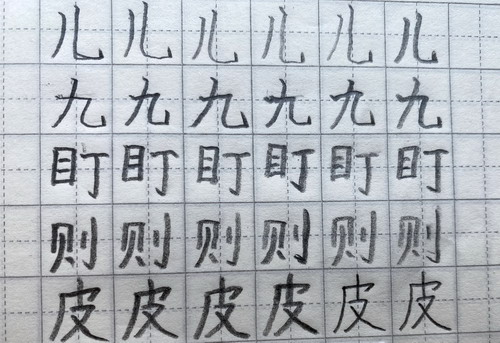 儿儿儿儿儿儿
九九九九九九
盯盯盯盯盯盯
则则则则则则
皮皮皮皮皮皮